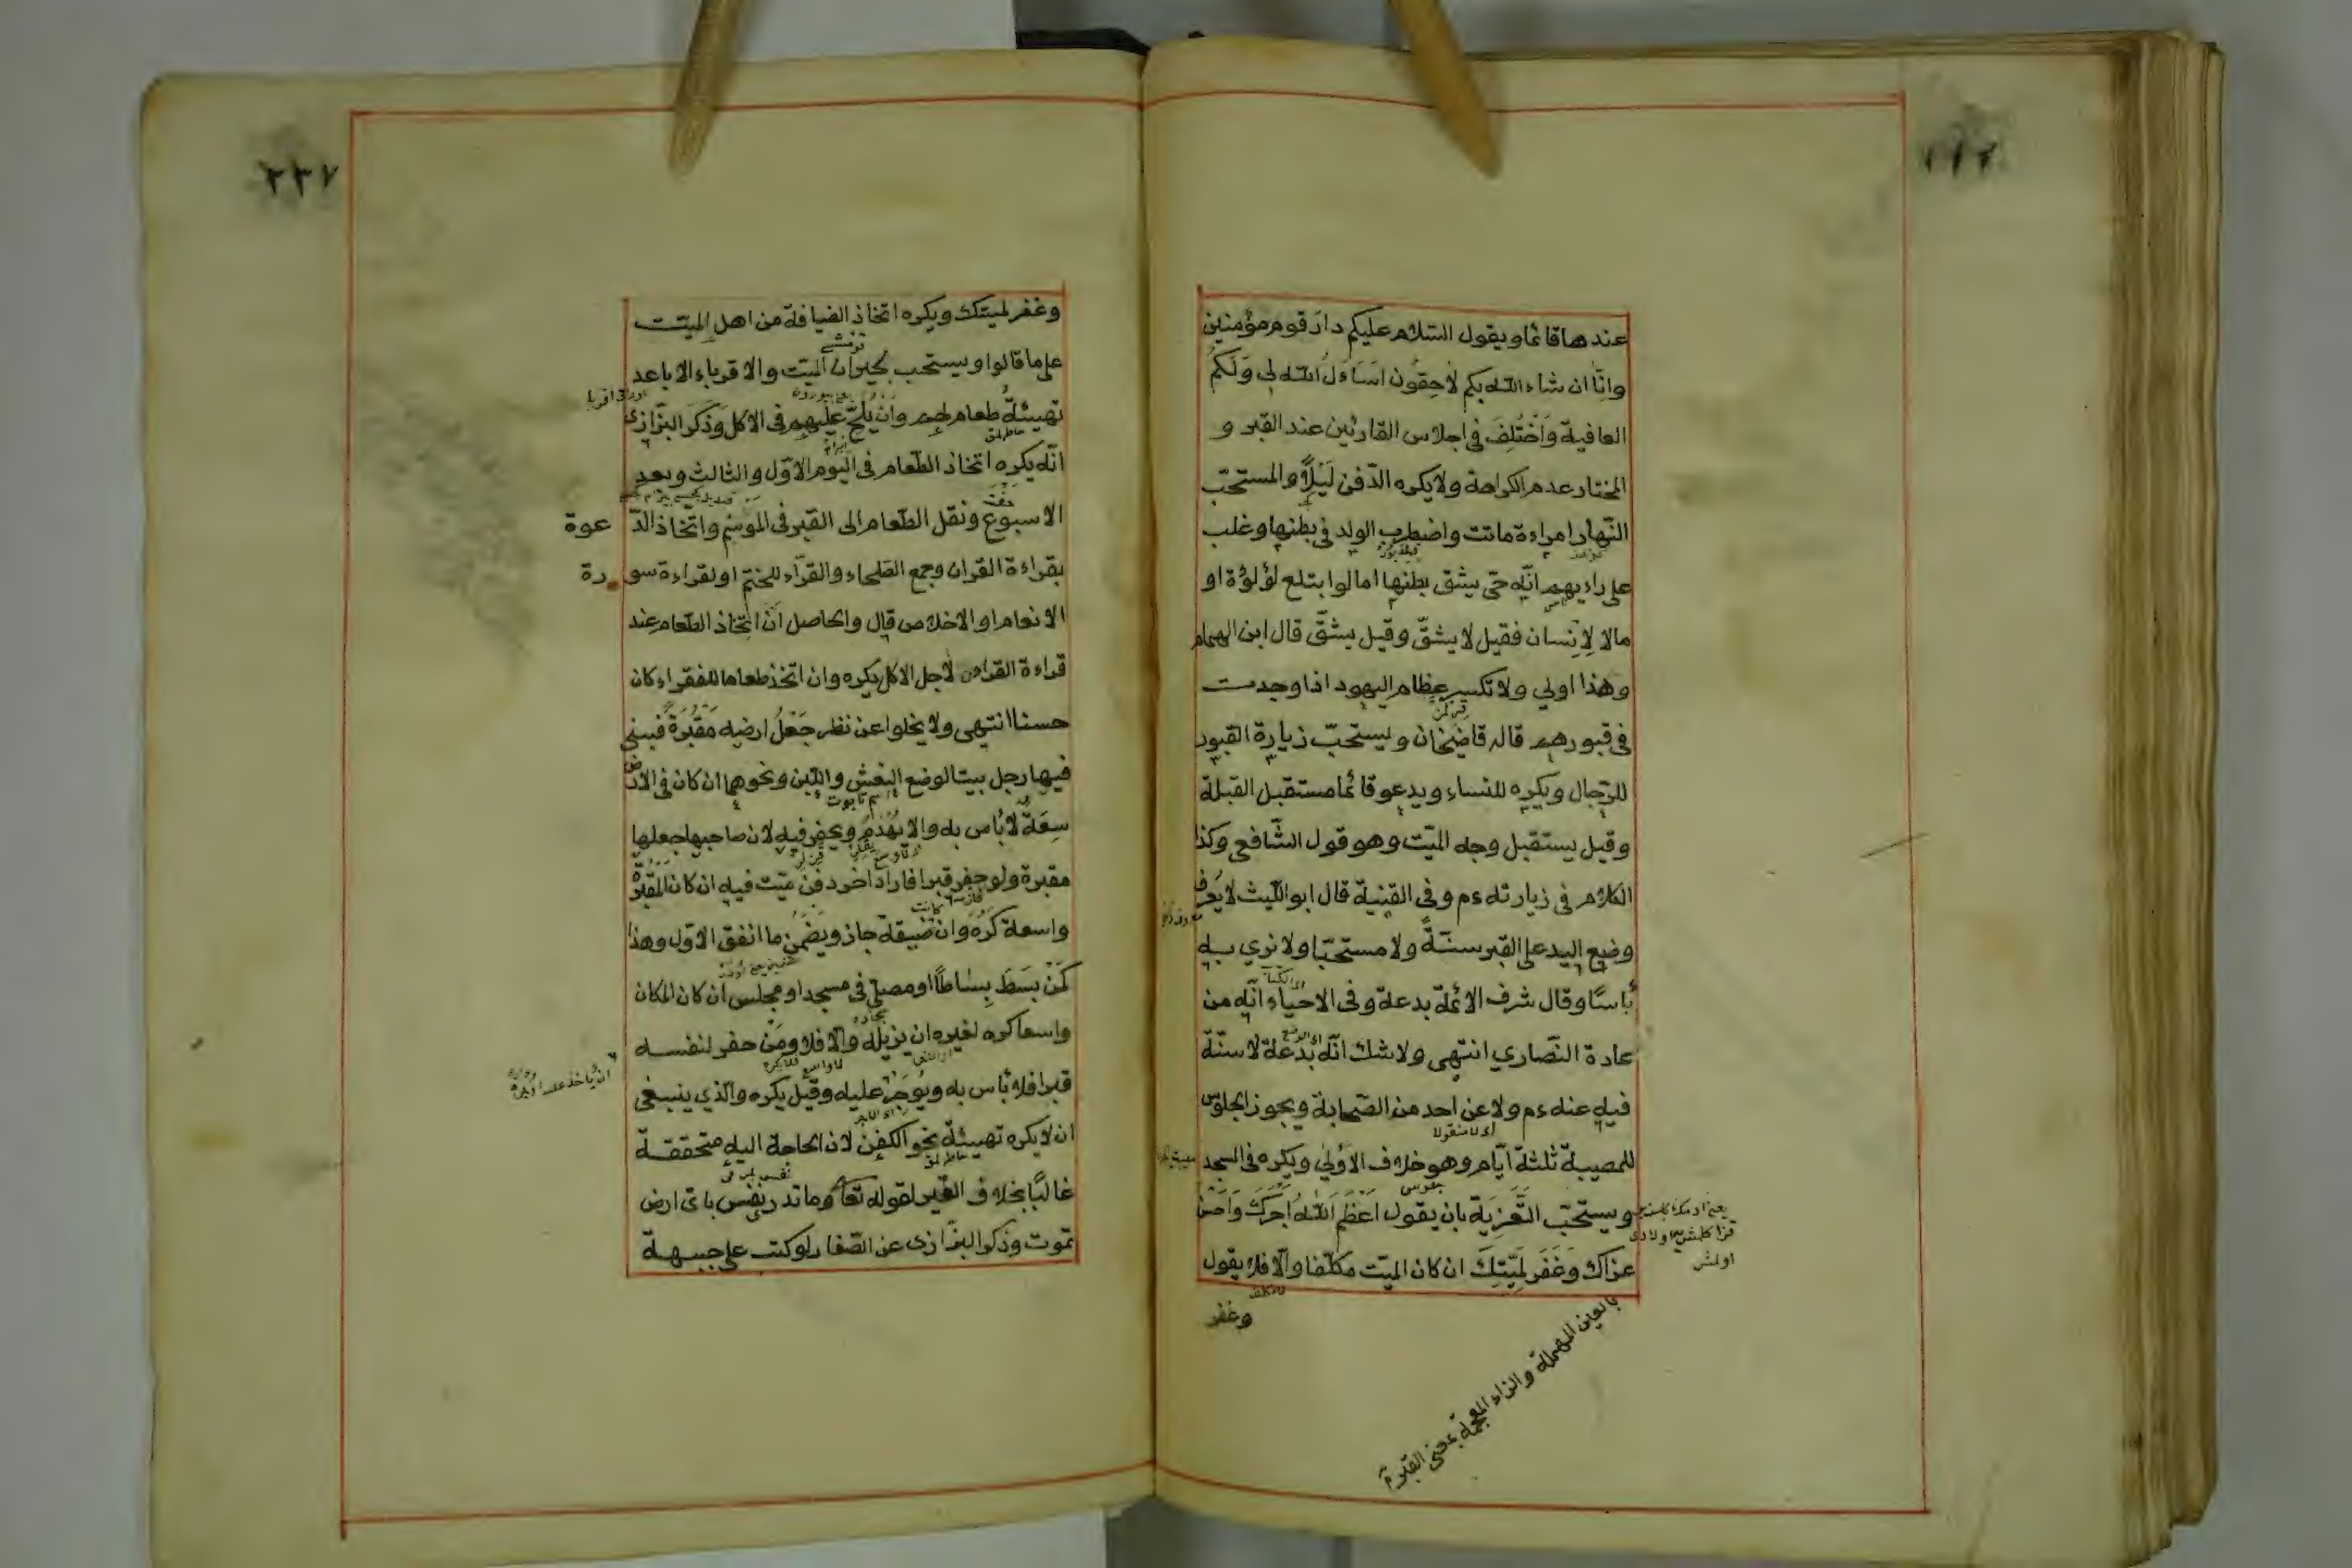 عندها قائما ويقول السلام عليكم دار قوم مؤمنين
وانّا ان شاء الله بكم لاحقون اساءل الله لي ولكم
العافية واختلف في اجلاس القارئين عند القبر و
المختار عدم الكراهة ولا يكره الدّفن ليلًا والمستحبّ
النّهار امراءة ماتت واضطرب الولد في بطنها وغلب
على راءيهم انّه حيّ يشق بطنها اما لوا بتلع لؤلؤة او
مالا لإنسان فقيل لا يشقّ وقيل يشقّ قال ابن الهمام
وهذا اولي ولا تكسر عظام اليهود اذا وجدت
في قبورهم قاله قاضيخان ويستحبّ زيارة القبور
للرّجال ويكره للنساء ويدعو قائما مستقبل القبلة
وقيل يستقبل وجه الميّت وهو قول الشّافعي وكذا
الكلام في زيارته ءم وفي القنية قال ابو اللّيث لا يعرف
وضع اليد على القبر سنّةً ولا مستحبّا ولا نري به
بأسًا وقال شرف الائمّة بدعة وفي الاحياء انّه من
عادة النّصاري انتهى ولا شك انّه بدعة لا سنّة
فيه عنه ءم ولا عن احد من الصّحابة ويجوز الجلوس
للمصيبة ثلثة ايّام وهو خلاف الاولي ويكره في المسجد
ويستحبّ التّعزية بان يقول اعظم الله اجرك واحسن
عزاك وغفر لميّتك ان كان الميّت مكلّفا والّا فلا يقول
وغفر
بالعين المهملة والزاء المعجمة بمعنى
٢٢٧
وغفر لميتك ويكره اتخاذ الضيافة من اهل الميّت
على ما قالوا ويستحب لجيران الميّت والاقرباء الاباعد
تهيئة طعام لهم وان يلحّ عليهم في الاكل وذكر البزّازى
انّه يكره اتخاذ الطّعام في اليوم الاوّل والثالث وبعد
الاسبوع ونقل الطّعام الى القبر في الموسم واتّخاذ الدّعوة
بقراءة القران وجمع الصّلحاء والقرّاء للختم او لقراءة سورة
الانعام او الاخلاص قال والحاصل انّ اتّخاذ الطّعام عند
قراءة القراءن لاجل الاكل يكره وان اتّخذ طعاما للفقراء كان
حسنا انتهى ولا يخلوا عن نظر جعل ارضه مقبرة فبنى
فيها رجل بيتا لوضع النعش واللّبن ونحوهما ان كان في الارض
سعة لا بأس به والا يهدم ويحفر فيه لان صاحبها جعلها
مقبرة ولو حفر قبرا فاراد اخر دفن ميّت فيه ان كان المقبرة
واسعة كره وان ضيقة جاز ويضمن ما انفق الاوّل وهذا
كمن بسط بساطًا او مصلّى في مسجد او مجلس ان كان المكان
واسعا كره لغيره ان يزيله والّا فلا ومن حفر لنفسه
قبرا فلا بأس به ويوجر عليه وقيل يكره والذي ينبغى
ان لا يكره تهيئة نحو الكفن لان الحاجة اليه متحققة
غالبًا بخلاف القبر لقوله تعالى وما تدر نفس باىّ ارض
تموت وذكر البزّازى عن الصّفار لو كتب على جبهة